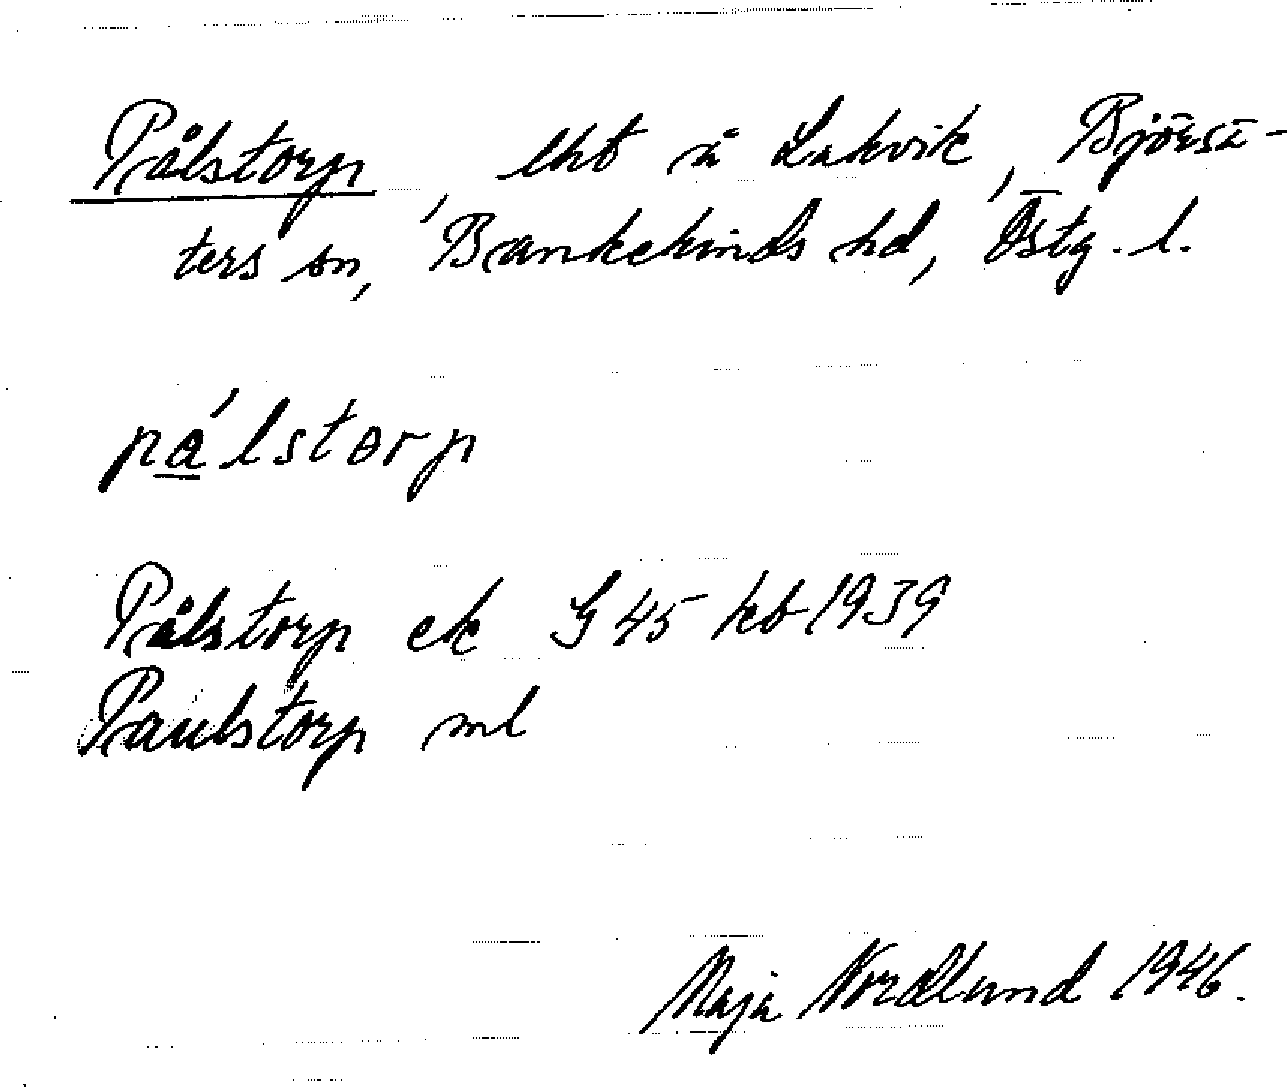 Pålstorp, lht å Lakvik, Björsä-
ters sn, Bankekinds hd, Östg. l.
pa̲ʹlstɵrp
Pålstorp ek G 45 kb 1939
Paulstorp ml
Maja Nordlund 1946.